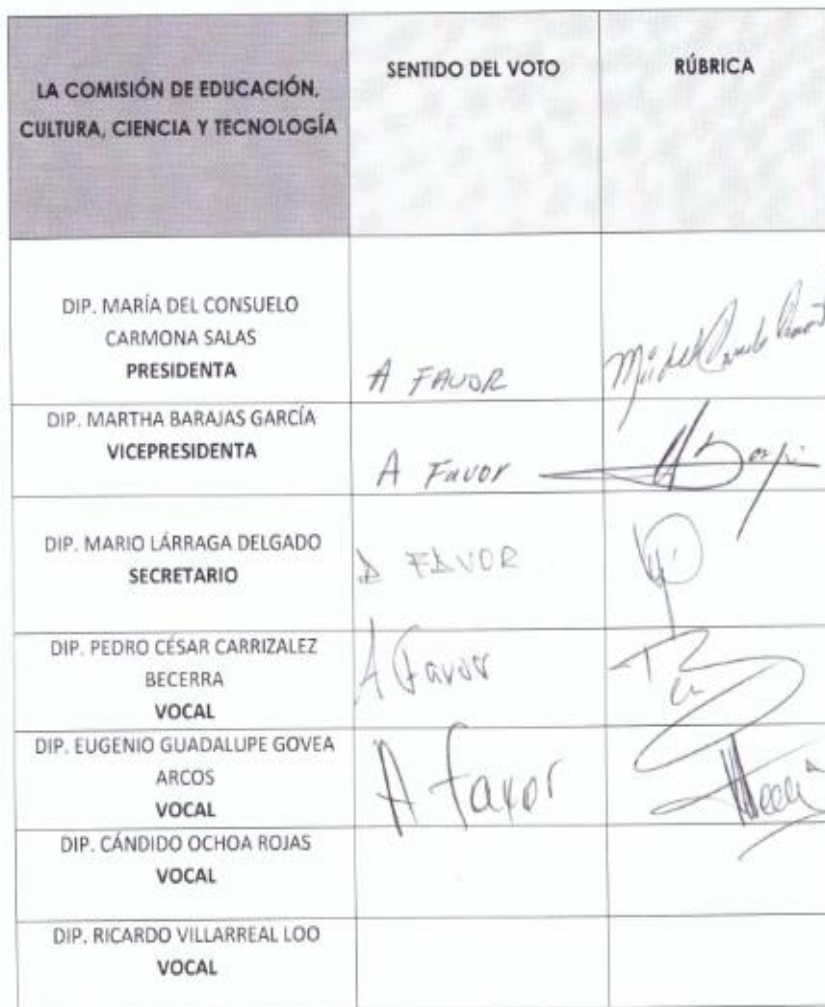 LA COMISIÓN DE EDUCACIÓN,
CULTURA, CIENCIA Y TECNOLOGÍA
SENTIDO DEL VOTO
RÚBRICA
DIP. MARÍA DEL CONSUELO
CARMONA SALAS
PRESIDENTA
A FAVOR
DIP. MARTHA BARAJAS GARCÍA
VICEPRESIDENTA
A Favor
DIP. MARIO LÁRRAGA DELGADO
SECRETARIO
A FAVOR
DIP. PEDRO CÉSAR CARRIZALEZ
BECERRA
VOCAL
A Favor
DIP. EUGENIO GUADALUPE GOVEA
ARCOS
VOCAL
A favor
DIP. CÁNDIDO OCHOA ROJAS
VOCAL
DIP. RICARDO VILLARREAL LOO
VOCAL